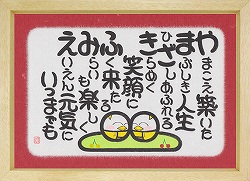 やまこえ築いた
まぶしき人生
ひざしあふれる
きらめく
笑顔に
ふく来たる
みらいも楽しく
えいえん元気に
いつまでも